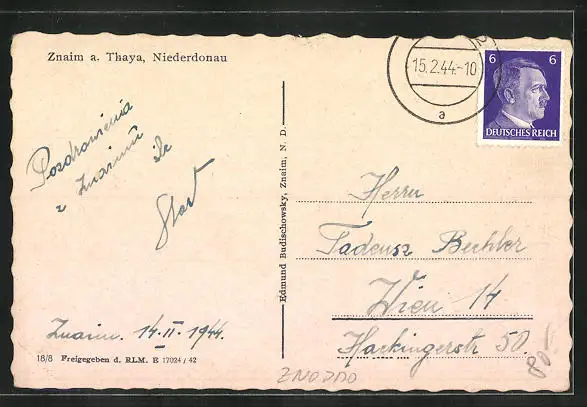 Znaim a. Thaya, Niederdonau
15.2.44.-10
a
6 6
DEUTSCHES REICH
Pozdrowienia
z Znaimu
Edmund Budischowsky, Znaim, N. D.
Herrn
Tadeusz Bechler
Wien 14
Hackingerstr 50.
Znaim. 14-II-1944.
18/8 Freigegeben d. RLM. B 17024/42
80.-